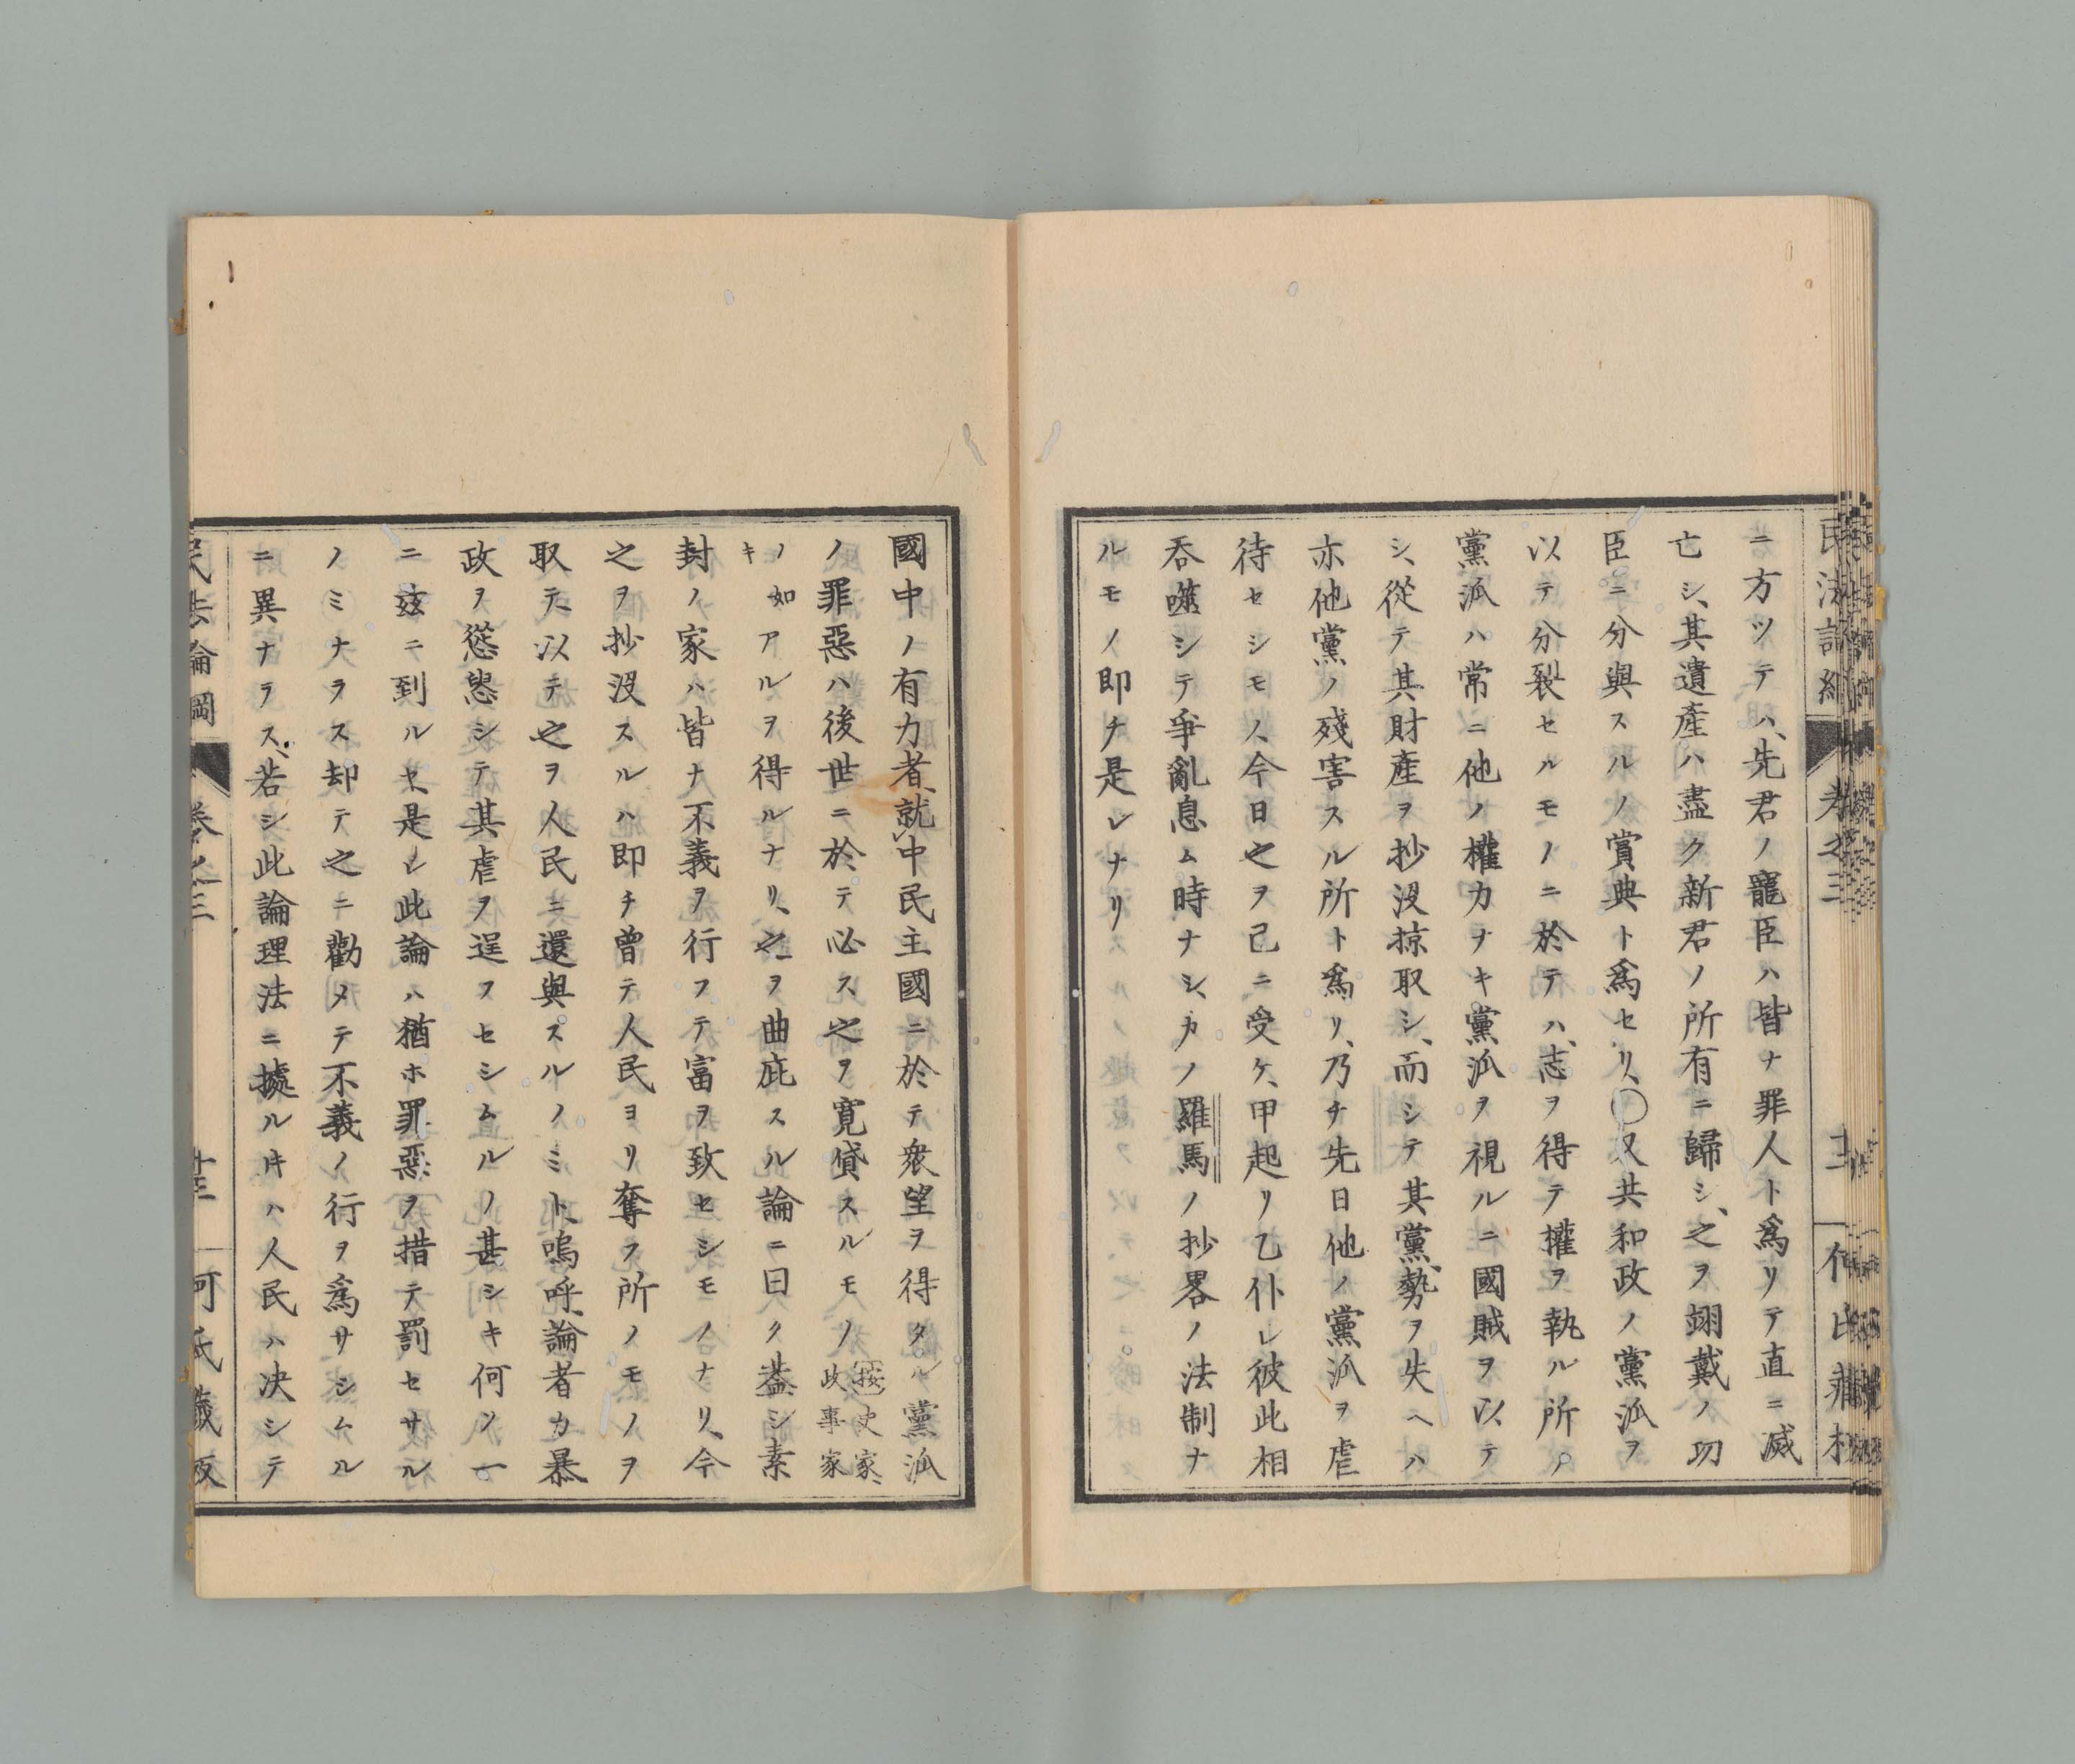 ニ方ツテハ、先君ノ寵臣ハ皆ナ罪人ト爲リテ直ニ滅
亡シ、其遺產ハ盡ク新君ノ所有ニ歸シ、之ヲ翊戴ノ功
臣ニ分與スルノ賞典ト爲セリ、〇又共和政ノ黨派ヲ
以テ分裂セルモノニ於テハ、志ヲ得テ權ヲ執ル所ノ
黨派ハ常ニ他ノ權力ナキ黨派ヲ視ルニ國賊ヲ以テ
シ、從テ其財產ヲ抄沒掠取シ、而シテ其黨、勢ヲ失ヘハ
亦他黨ノ殘害スル所ト爲リ、乃チ先日他ノ黨派ヲ虐
待セシモノ、今日之ヲ己ニ受ケ、甲起リ乙仆レ彼此相
吞噬シテ爭亂息ム時ナシ、カノ羅馬ノ抄畧ノ法制ナ
ルモノ即チ是レナリ
國中ノ有力者、就中民主國ニ於テ衆望ヲ得タル黨派
ノ罪惡ハ後世ニ於テ必ス之ヲ寬貸スルモノ按史家、政事家
ノ如キアルヲ得ルナリ、之ヲ曲庇スル論ニ曰ク葢シ素
封ノ家ハ皆ナ不義ヲ行フテ富ヲ致セシモノナリ、今
之ヲ抄沒スルハ即チ曾テ人民ヨリ奪フ所ノモノヲ
取テ、以テ之ヲ人民ニ還與スルノミト、嗚呼、論者カ暴
政ヲ慫慂シテ其虐ヲ逞フセシムルノ甚シキ何ソ一
ニ玆ニ到ルヤ、是レ此論ハ猶ホ罪惡ヲ措テ罰セサル
ノミナラス却テ之ニ勸メテ不義ノ行ヲ爲サシムル
ニ異ナラス、若シ此論理法ニ據ルキハ人民ハ決シテ
民法論綱 卷之三 十三 何氏藏板